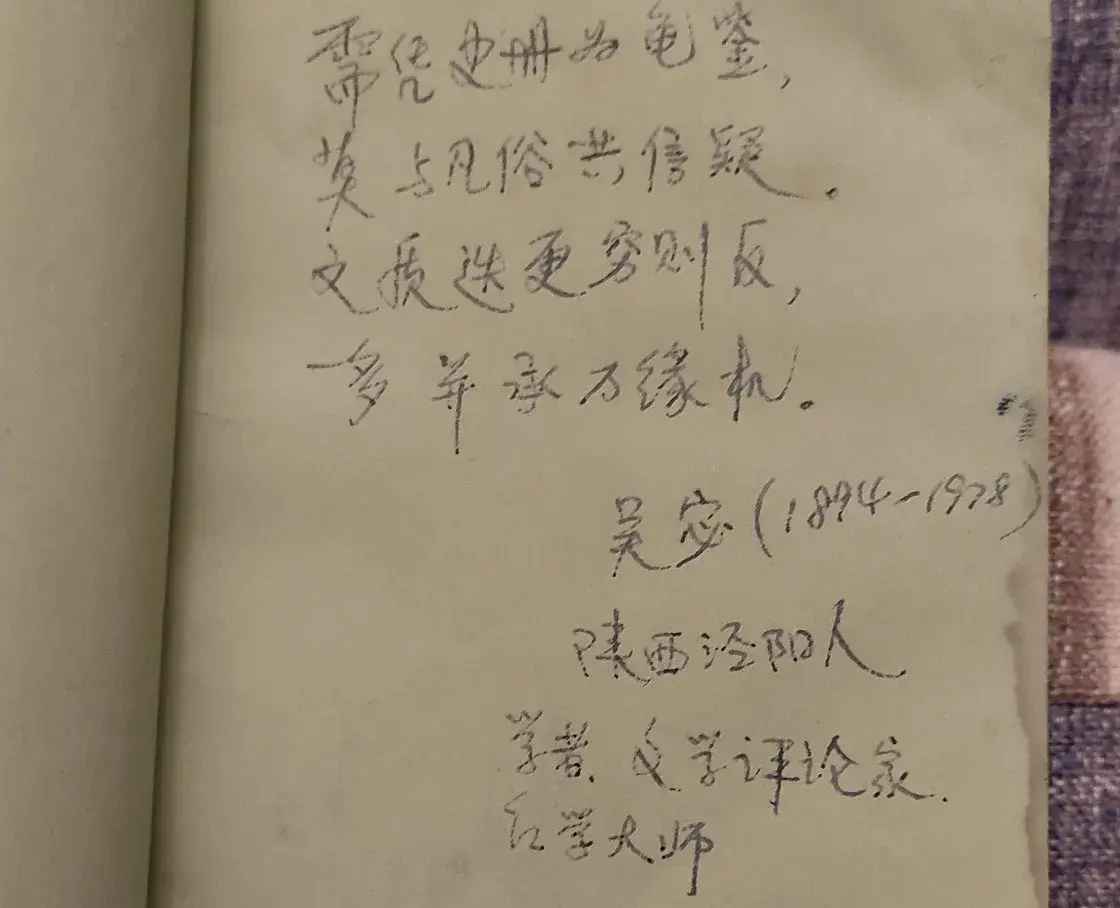 需凭史册为龟鉴,
莫与凡俗共信疑。
文质迭更穷则反,
一多并承万缘机。
吴宓(1894-1978)
陕西泾阳人
学者、文学评论家.
红学大师